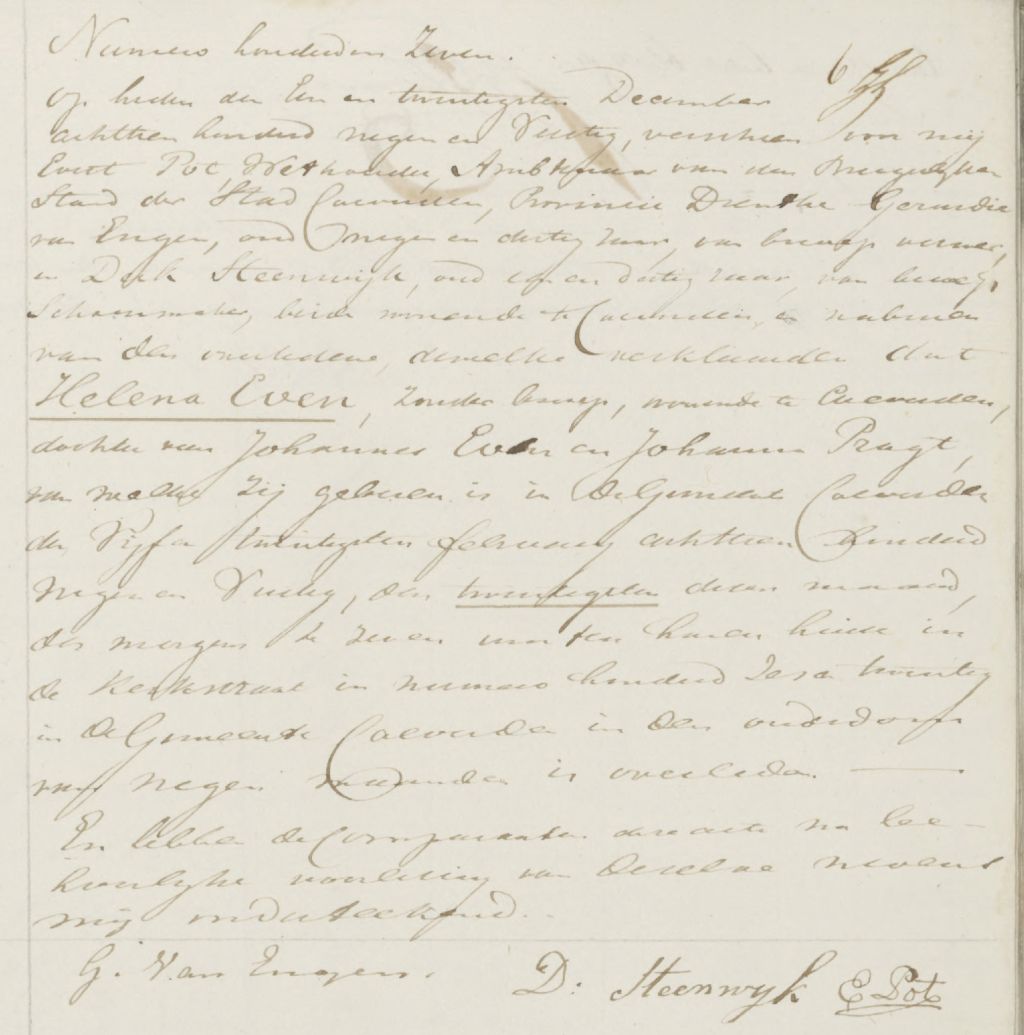 Numero honderden Zeven.
op heden den Een en twintigsten December
achttien honderd negen en Veertig, verscheen voor mij
Evert Pot, Wethouder, Ambtenaar van den Burgerlijken
Stand der Stad Coevorden, Provincie Drenthe Gerardus
van Engen, oud negen en dertig Jaar, van beroep verwer,
en Derk Steenwijk, oud een en dertig jaar, van beroep,
Schoenmaker, beide wonende te Coevorden, en naburen
van den overledene, dewelke verklaarden dat
Helena Even, zonder beroep, wonende te Coevorden,
dochter van Johannes Even en Johanna Pragt,
van welke zij geboren is in de Gemeente Coevorden
den Vijf en twintigsten february achttien honderd
Negen en Veertig, den twintigsten dezer maand,
des morgens te zeven uur ten haren huize in
de Kerkstraat in numero honderd Zes en twintig
in de Gemeente Coevorden in den ouderdom
van negen maanden is overleden.
En hebben de Comparanten deze acte na be-
hoorlijke voorlezing van dezelve nevens
mij onderteekend.
G. Van Engen.
D: Steenwyk E Pot